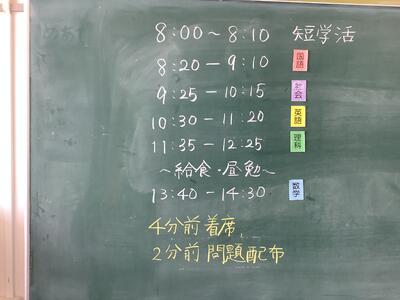 8:00〜8:10 短学活
8:20－9:10 国語
9:25－10:15 社会
10:30－11:20 英語
11:35－12:25 理科
〜給食・昼勉〜
13:40－14:30 数学
4分前着席、
2分前問題配布